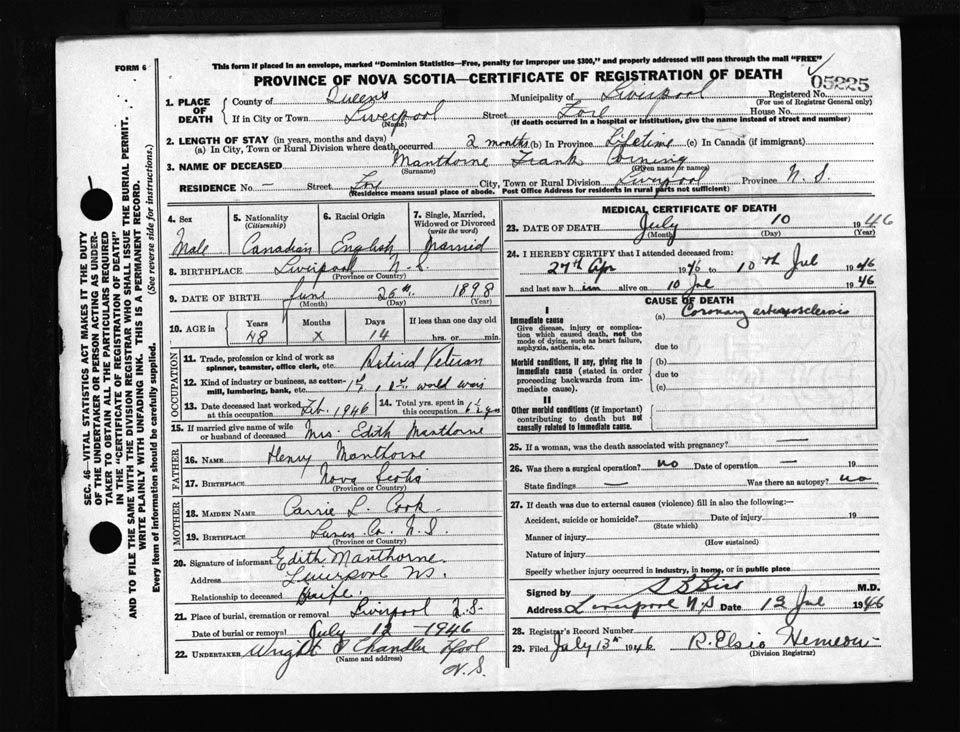 FORM 6
This form if placed in an envelope, marked "Dominion Statistics—Free, penalty for improper use $300," and properly addressed will pass through the mail "FREE"
PROVINCE OF NOVA SCOTIA—CERTIFICATE OF REGISTRATION OF DEATH
05225
1. PLACE OF DEATH
County of Queens Municipality of Liverpool Registered No.
(For use of Registrar General only)
If in City or Town Liverpool Street House No.
(Name) (If death occurred in a hospital or institution, give the name instead of street and number)
2. LENGTH OF STAY (in years, months and days)
(a) In City, Town or Rural Division where death occurred 2 months (b) In Province Lifetime (c) In Canada (if immigrant)
3. NAME OF DECEASED Manthorne Frank Corning
(Surname) (Given name or names)
RESIDENCE No. — Street City, Town or Rural Division Liverpool Province N. S.
(Residence means usual place of abode. Post Office Address for residents in rural parts not sufficient)
4. Sex Male
5. Nationality (Citizenship) Canadian
6. Racial Origin English
7. Single, Married, Widowed or Divorced (write the word) Married
8. BIRTHPLACE Liverpool N.S.
(Province or Country)
9. DATE OF BIRTH June 26th 1898
(Month) (Day) (Year)
10. AGE in Years Months Days If less than one day old
48 x 14 hrs. or min.
OCCUPATION
11. Trade, profession or kind of work as spinner, teamster, office clerk, etc. Retired Veteran
12. Kind of industry or business, as cotton-mill, lumbering, bank, etc. world war
13. Date deceased last worked at this occupation Feb. 1946
14. Total yrs. spent in this occupation 6½ yrs
15. If married give name of wife or husband of deceased Mrs. Edith Manthorne
FATHER
16. NAME Henry Manthorne
17. BIRTHPLACE Nova Scotia
(Province or Country)
MOTHER
18. MAIDEN NAME Carrie L. Cook
19. BIRTHPLACE Lunen. Co. N.S.
(Province or Country)
20. Signature of informant Edith Manthorne.
Address Liverpool NS.
Relationship to deceased Wife.
21. Place of burial, cremation or removal Liverpool N.S.
Date of burial or removal July 12 - 1946
22. UNDERTAKER Wright & Chandler Lpool
(Name and address) N.S.
MEDICAL CERTIFICATE OF DEATH
23. DATE OF DEATH July 10 1946
(Month) (Day) (Year)
24. I HEREBY CERTIFY that I attended deceased from:
27th Apr 1946 to 10th Jul 1946
and last saw him alive on 10 Jul 1946
CAUSE OF DEATH
I
Immediate cause (a) Coronary arteriosclerosis
Give disease, injury or complication which caused death, not the mode of dying, such as heart failure, asphyxia, asthenia, etc.
due to
Morbid conditions, if any, giving rise to immediate cause (stated in order proceeding backwards from immediate cause).
(b)
due to
(c)
II
Other morbid conditions (if important) contributing to death but not causally related to immediate cause.
25. If a woman, was the death associated with pregnancy? —
26. Was there a surgical operation? no Date of operation — 19
State findings — Was there an autopsy? no
27. If death was due to external causes (violence) fill in also the following:—
Accident, suicide or homicide? Date of injury 19
(State which)
Manner of injury
(How sustained)
Nature of injury
Specify whether injury occurred in industry, in home, or in public place
Signed by M.D.
Address Liverpool N.S Date 12 Jul 1946
28. Registrar's Record Number
29. Filed July 13th 1946 R. Elsie Hemeon
(Division Registrar)
SEC. 46—VITAL STATISTICS ACT MAKES IT THE DUTY
OF THE UNDERTAKER OR PERSON ACTING AS UNDERTAKER TO OBTAIN ALL THE PARTICULARS REQUIRED
IN THE "CERTIFICATE OF REGISTRATION OF DEATH"
AND TO FILE THE SAME WITH THE DIVISION REGISTRAR WHO SHALL ISSUE THE BURIAL PERMIT.
WRITE PLAINLY WITH UNFADING INK. THIS IS A PERMANENT RECORD.
Every item of information should be carefully supplied. (See reverse side for instructions.)